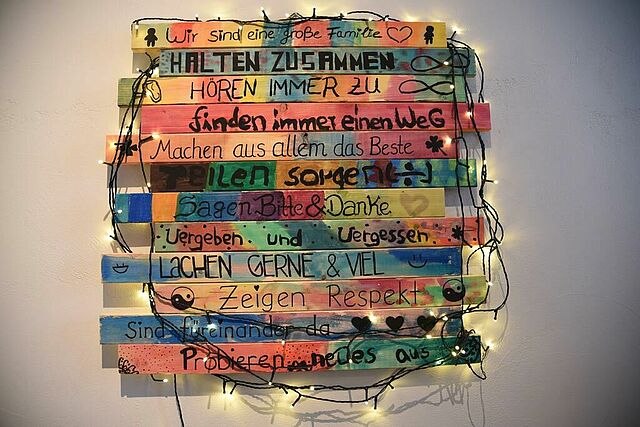 Wir sind eine große Familie
HALTEN ZUSAMMEN
HÖREN IMMER ZU
finden immer einen WeG
Machen aus allem das Beste
TEILEN sorgen
Sagen Bitte & Danke
Vergeben und Vergessen.
LACHEN GERNE & VIEL
Zeigen Respekt
Sind füreinander da
Probieren neues aus